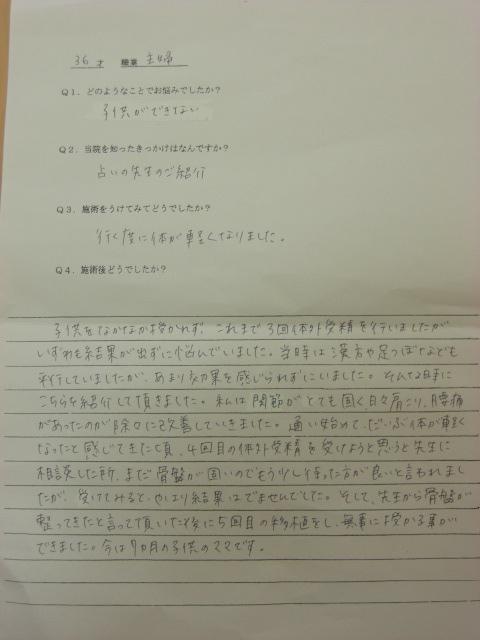 36才 職業 主婦
Q1. どのようなことでお悩みでしたか?
子供ができない
Q2. 当院を知ったきっかけはなんですか?
占いの先生のご紹介
Q3. 施術をうけてみてどうでしたか?
行く度に体が軽くなりました。
Q4. 施術後どうでしたか?
子供をなかなか授かれず、これまで3回体外受精を行いましたが
いずれも結果が出ずに悩んでいました。当時は漢方や足つぼなども
平行していましたが、あまり効果を感じられずにいました。そんな時に
こちらを紹介して頂きました。私は関節がとても固く、日々肩こり、腰痛
があったのが徐々に改善していきました。通い始めて、だいぶ体が軽く
なったと感じてきた頃、4回目の体外受精を受けようと思うと先生に
相談した所、まだ骨盤が固いのでもう少し待った方が良いと言われまし
たが、受けてみるとやはり結果はでませんでした。そして、先生から骨盤が
整ってきたと言って頂いた後に5回目の移植をし、無事に授かる事が
できました。今は7カ月の子供のママです。